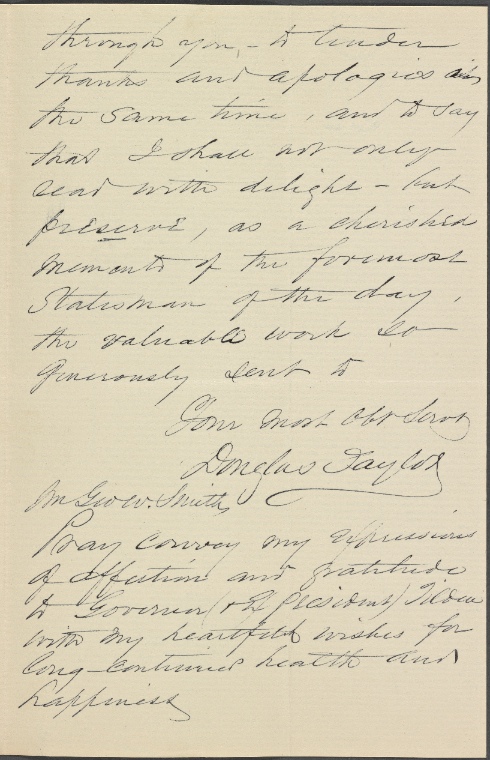 through you, - to tender
thanks and apologies at
the same time, and to say
that I shall not only
read with delight - but
preserve, as a cherished
memento of the foremost
Statesman of the day,
the valuable work so
generously sent to
Your most Obt Servt
Douglas Taylor
Mr Geo W. Smith,
Pray convey my expressions
of affection and gratitude
to Governor (& Ex President) Tilden
with my heartfelt wishes for
long-continued health and
happiness